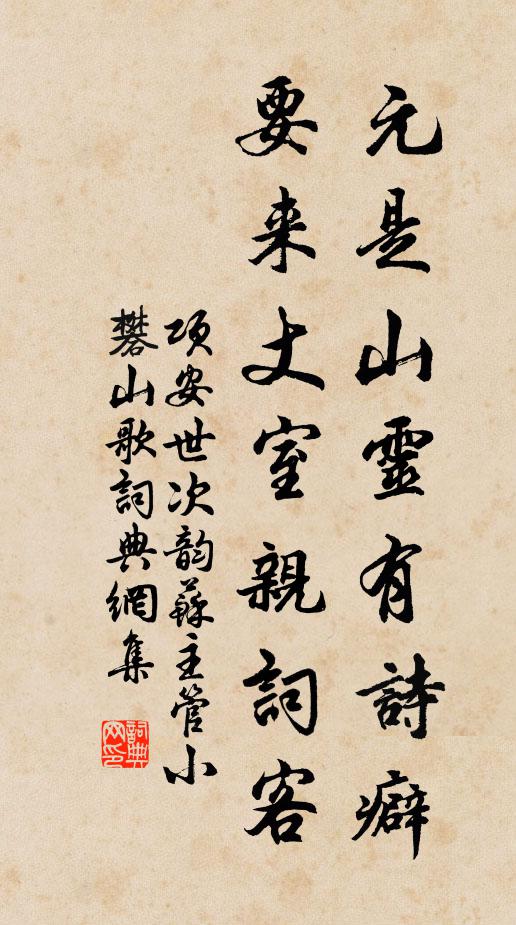 元是山靈有詩癖
要来丈室親詞客
項安世次韵蘇主管小
礬山歌詞典網集
詞典网印